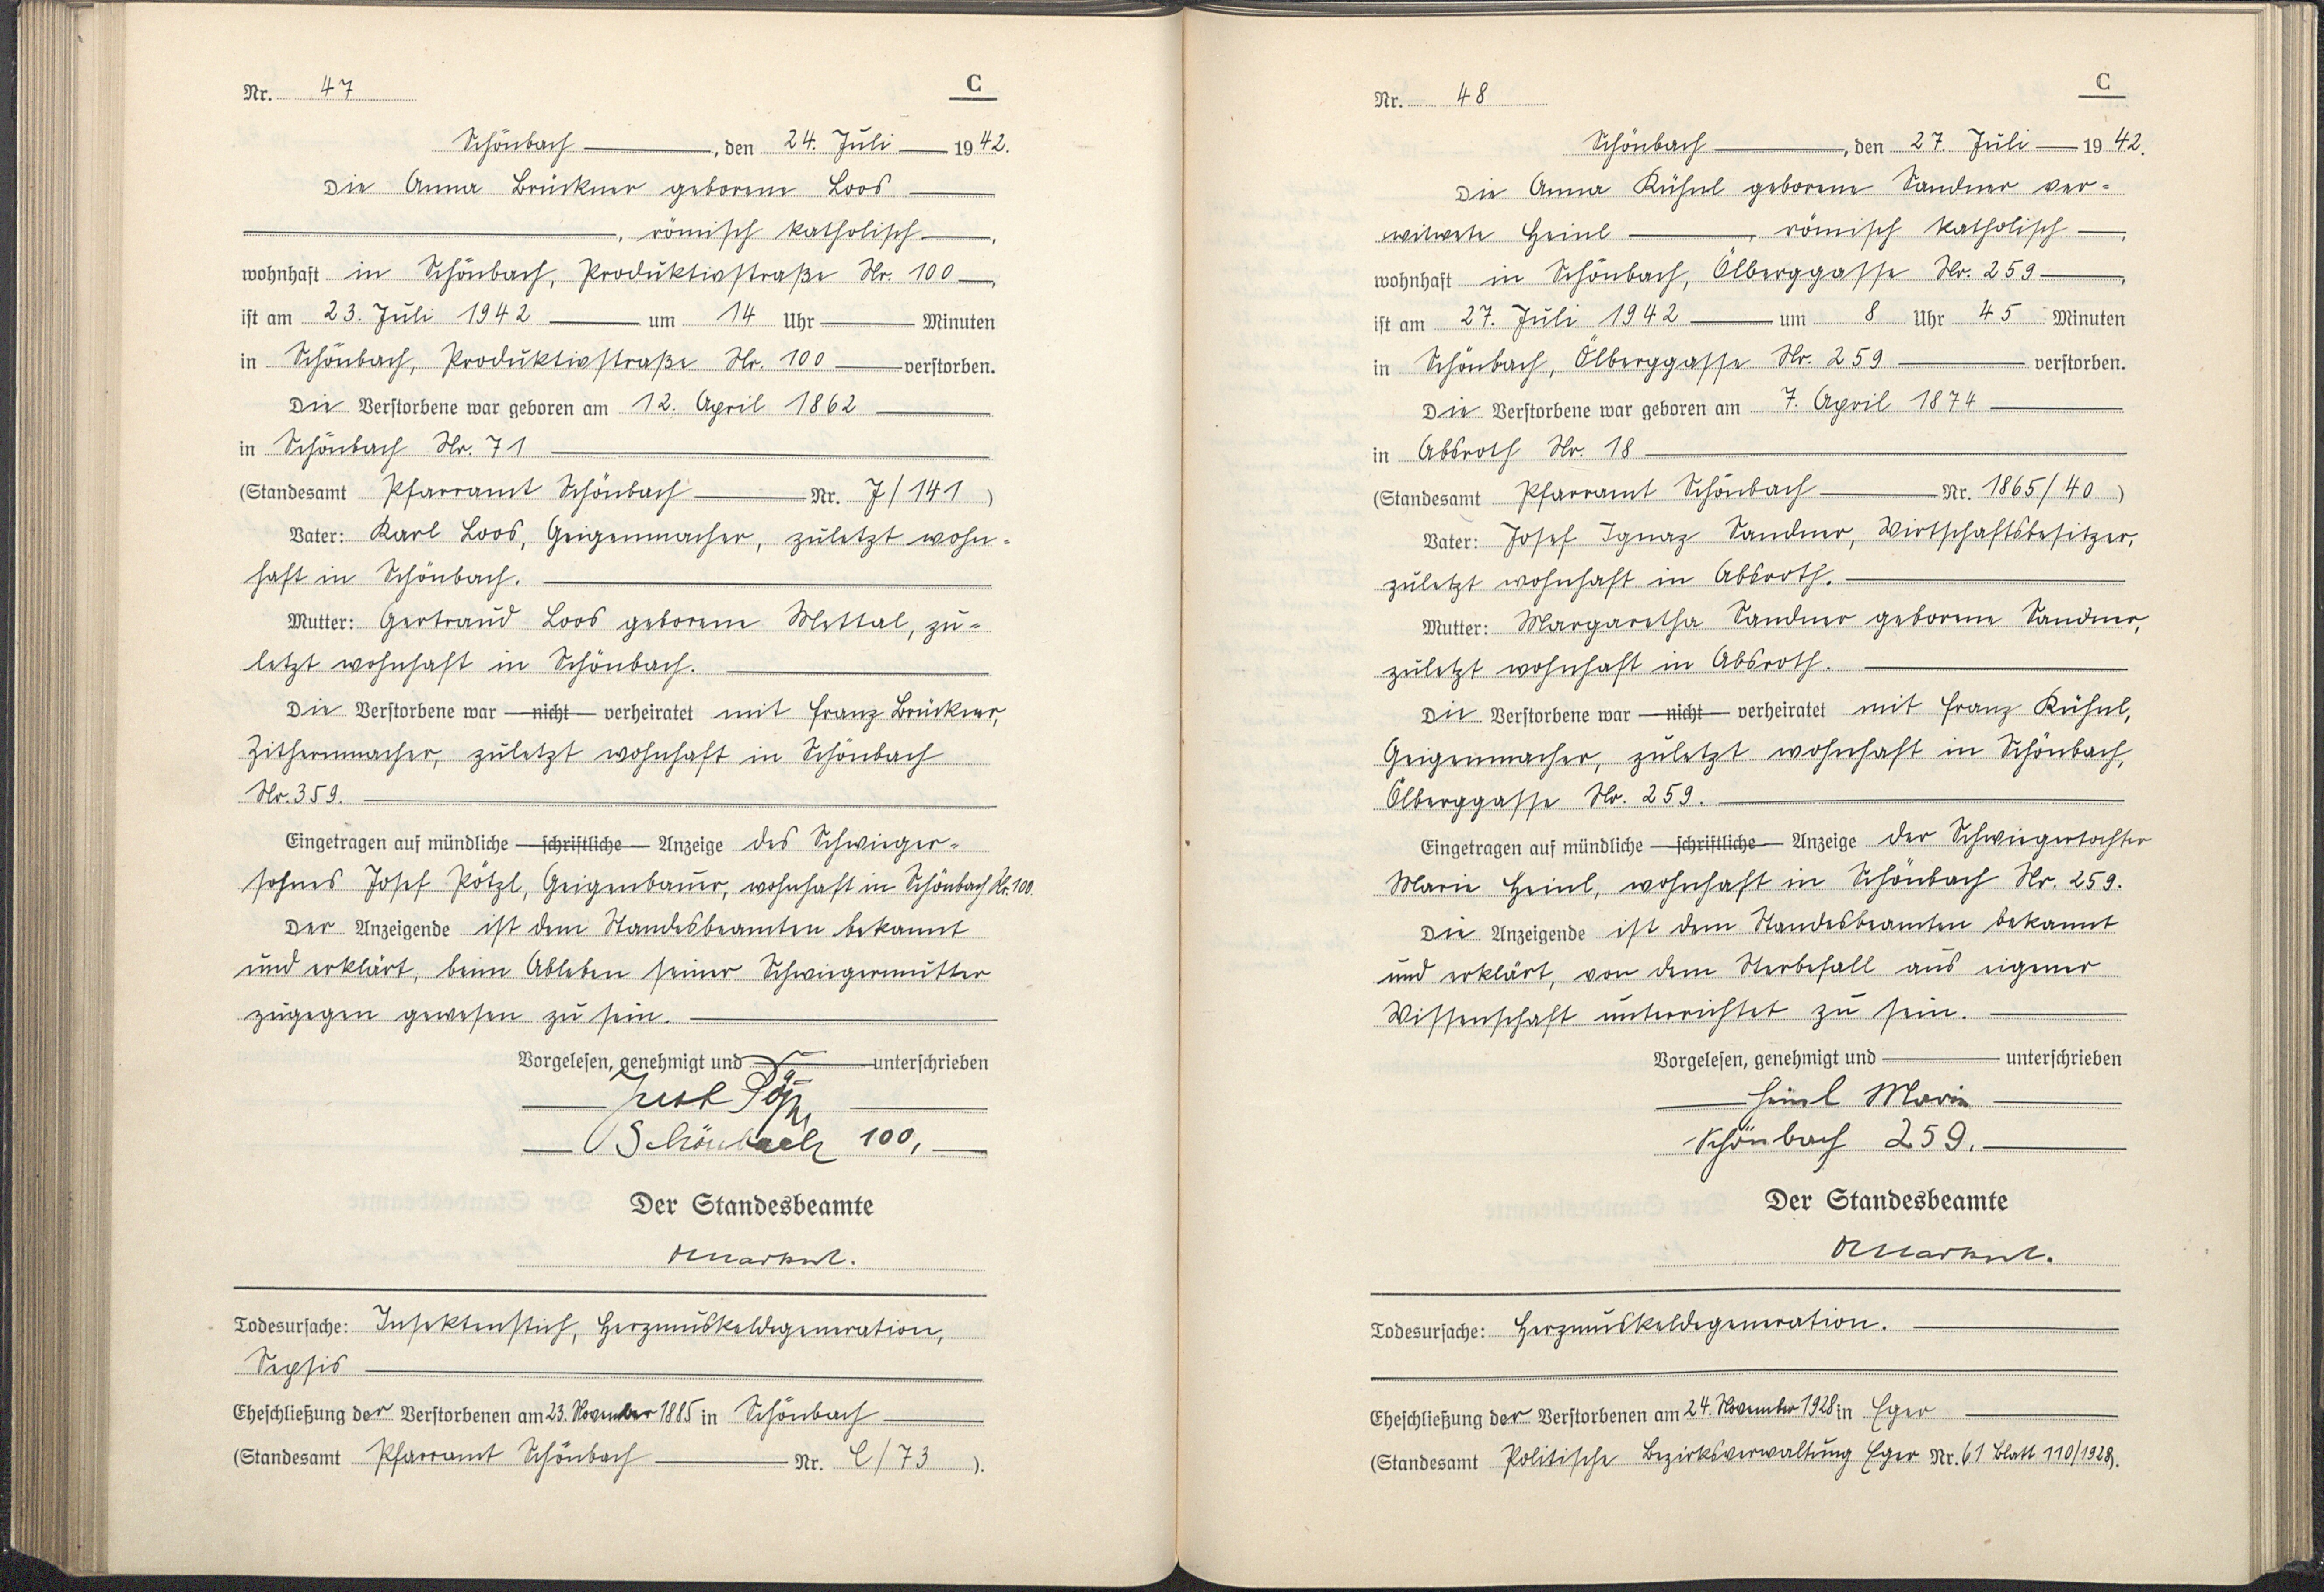 Nr. 47
C
Schönbach, den 24. Juli 1942.
Die Anna Brückner geborene Loos
, römisch katholisch,
wohnhaft in Schönbach, Produktivstraße Nr. 100,
ist am 23. Juli 1942 um 14 Uhr Minuten
in Schönbach, Produktivstraße Nr. 100 verstorben.
Die Verstorbene war geboren am 12. April 1862
in Schönbach Nr. 71
(Standesamt Pfarramt Schönbach Nr. J/141)
Vater: Karl Loos, Geigenmacher, zuletzt wohn-
haft in Schönbach.
Mutter: Gertraud Loos geborene Mettal, zu-
letzt wohnhaft in Schönbach.
Die Verstorbene war nicht verheiratet mit Franz Brückner,
Zithernmacher, zuletzt wohnhaft in Schönbach
Nr. 359.
Eingetragen auf mündliche schriftliche Anzeige des Schwieger-
sohnes Josef Pötzl, Geigenbauer, wohnhaft in Schönbach Nr. 100.
Der Anzeigende ist dem Standesbeamten bekannt
und erklärt, beim Ableben seiner Schwiegermutter
zugegen gewesen zu sein.
Vorgelesen, genehmigt und unterschrieben
Schönbach 100,
Der Standesbeamte
Todesursache: Insektenstich, Herzmuskeldegeneration,
Sepsis
Eheschließung der Verstorbenen am 23. November 1885 in Schönbach
(Standesamt Pfarramt Schönbach Nr. C/73).
Nr. 48
C
Schönbach, den 27. Juli 1942.
Die Anna Kühnl geborene Sandner ver-
witwete Heinl, römisch katholisch,
wohnhaft in Schönbach, Ölberggasse Nr. 259,
ist am 27. Juli 1942 um 8 Uhr 45 Minuten
in Schönbach, Ölberggasse Nr. 259 verstorben.
Die Verstorbene war geboren am 7. April 1874
in Absroth Nr. 18
(Standesamt Pfarramt Schönbach Nr. 1865/40)
Vater: Josef Ignaz Sandner, Wirtschaftsbesitzer,
zuletzt wohnhaft in Absroth.
Mutter: Margaretha Sandner geborene Sandner,
zuletzt wohnhaft in Absroth.
Die Verstorbene war nicht verheiratet mit Franz Kühnl,
Geigenmacher, zuletzt wohnhaft in Schönbach,
Ölberggasse Nr. 259.
Eingetragen auf mündliche schriftliche Anzeige der Schwiegertochter
Marie Heinl, wohnhaft in Schönbach Nr. 259.
Die Anzeigende ist dem Standesbeamten bekannt
und erklärt, von dem Sterbefall aus eigener
Wissenschaft unterrichtet zu sein.
Vorgelesen, genehmigt und unterschrieben
Heinl Marie
Schönbach 259.
Der Standesbeamte
Todesursache: Herzmuskeldegeneration.
Eheschließung der Verstorbenen am 24. November 1928 in Eger
(Standesamt Politische Bezirksverwaltung Eger Nr. 61 Blatt 110/1928).